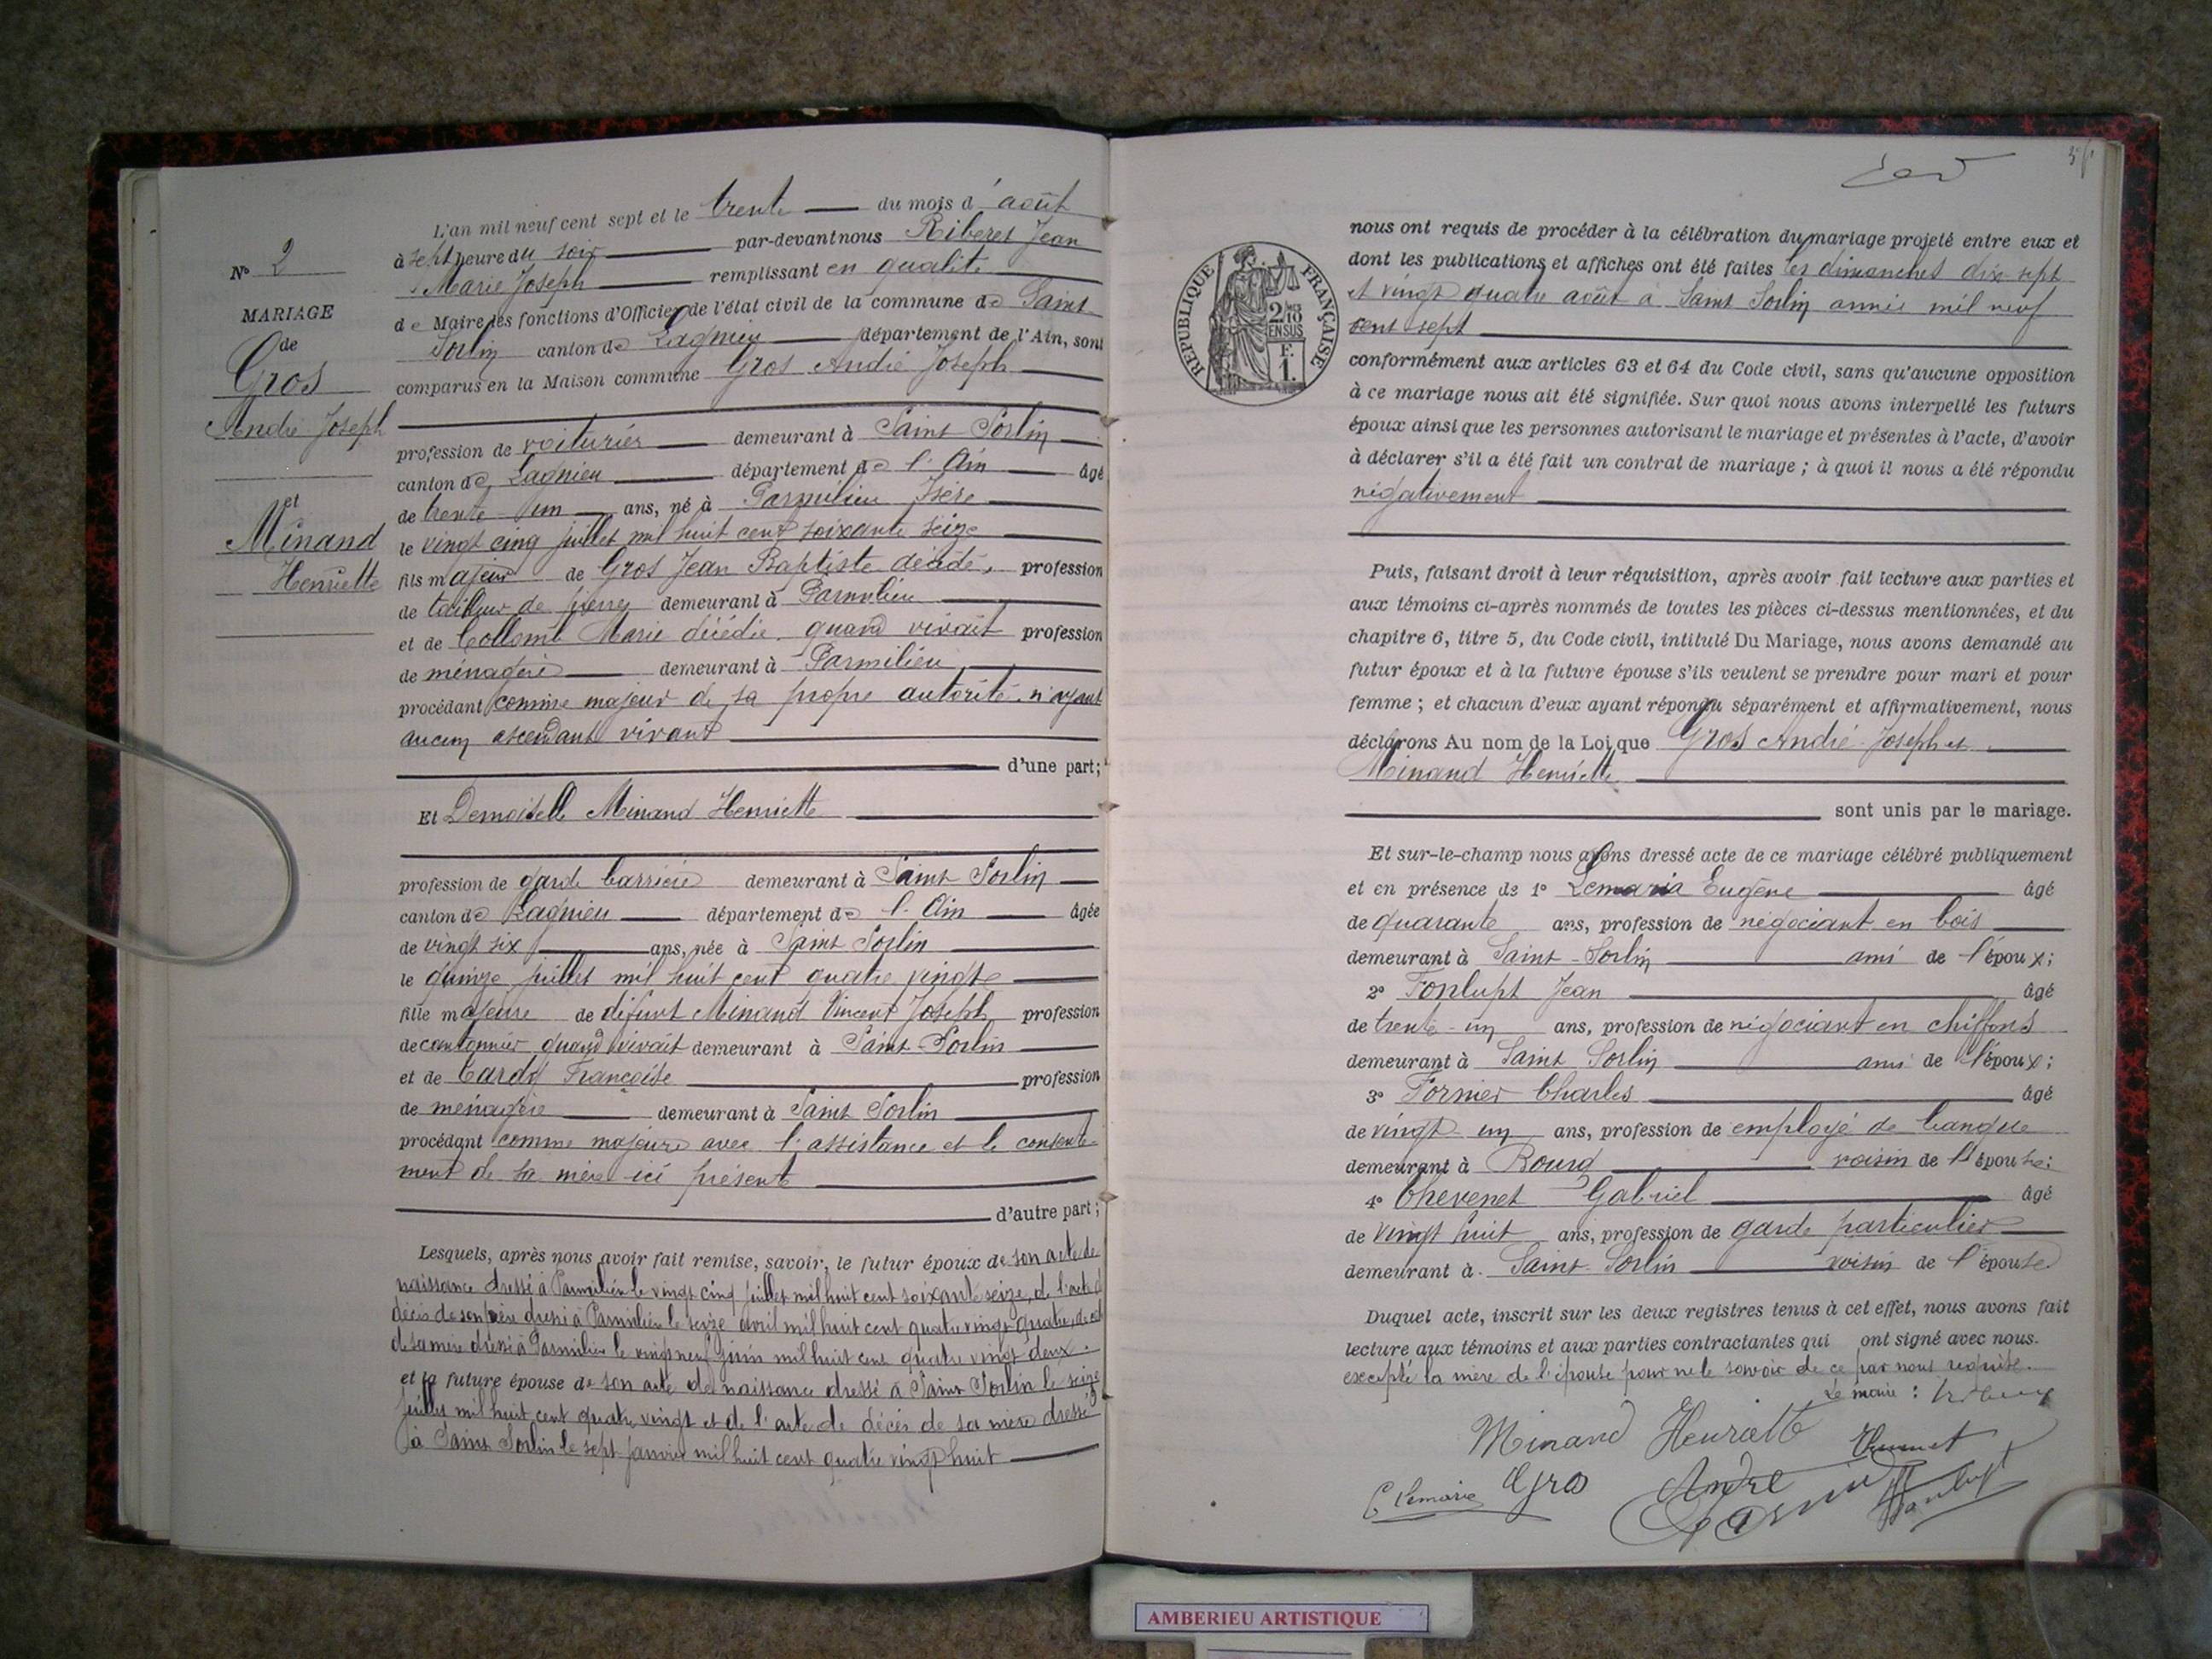 L'an mil neuf cent sept et le trente du mois d'août
à sept heure du soir par-devant nous Riberet Jean
Marie Joseph remplissant en qualité
de Maire les fonctions d'Officier de l'état civil de la commune de Saint
Sorlin canton de Lagnieu département de l'Ain, sont
comparus en la Maison commune Gros André Joseph
N° 2
MARIAGE
de
Gros
André Joseph
et
Minand
Henriette
profession de voiturier demeurant à Saint Sorlin
canton de Lagnieu département de l'Ain âgé
de trente un ans, né à Parmilieu Isère
le vingt cinq juillet mil huit cent soixante seize
fils majeur de Gros Jean Baptiste décédé, profession
de tailleur de pierres demeurant à Parmilieu
et de Collomb Marie décédée quand vivait profession
de ménagère demeurant à Parmilieu
procédant comme majeur de sa propre autorité n'ayant
aucun ascendant vivant
d'une part;
Et Demoiselle Minand Henriette
profession de garde barrière demeurant à Saint Sorlin
canton de Lagnieu département de l'Ain âgée
de vingt six ans, née à Saint Sorlin
le quinze juillet mil huit cent quatre vingts
fille majeure de défunt Minand Vincent Joseph profession
de cantonnier quand vivait demeurant à Saint-Sorlin
et de Françoise profession
de ménagère demeurant à Saint Sorlin
procédant comme majeure avec l'assistance et le consente
ment de sa mère ici présent
d'autre part;
Lesquels, après nous avoir fait remise, savoir, le futur époux de son acte de
naissance dressé à Parmilieu le vingt cinq juillet mil huit cent soixante seize, de l'acte
décès de son père dressé à Parmilieu le seize avril mil huit cent quatre vingt quatre,
de sa mère dressé à Parmilieu le vingt neuf juin mil huit cent quatre vingt deux.
et la future épouse de son acte de naissance dressé à Saint Sorlin le seize
juillet mil huit cent quatre vingt et de l'acte de décès de sa mère dressé
à Saint Sorlin le sept janvier mil huit cent quatre vingt huit
nous ont requis de procéder à la célébration du mariage projeté entre eux et
dont les publications et affiches ont été faites les dimanches dix sept
et vingt quatre août à Saint Sorlin année mil neuf
cent sept
RÉPUBLIQUE FRANÇAISE
2/10 EN SUS
F.
1.
conformément aux articles 63 et 64 du Code civil, sans qu'aucune opposition
à ce mariage nous ait été signifiée. Sur quoi nous avons interpellé les futurs
époux ainsi que les personnes autorisant le mariage et présentes à l'acte, d'avoir
à déclarer s'il a été fait un contrat de mariage; à quoi il nous a été répondu
négativement
Puis, faisant droit à leur réquisition, après avoir fait lecture aux parties et
aux témoins ci-après nommés de toutes les pièces ci-dessus mentionnées, et du
chapitre 6, titre 5, du Code civil, intitulé Du Mariage, nous avons demandé au
futur époux et à la future épouse s'ils veulent se prendre pour mari et pour
femme; et chacun d'eux ayant répondu séparément et affirmativement, nous
déclarons Au nom de la Loi que Gros André Joseph et
Minand Henriette
sont unis par le mariage.
Et sur-le-champ nous avons dressé acte de ce mariage célébré publiquement
et en présence de 1° Lemaria Eugène âgé
de quarante ans, profession de négociant en bois
demeurant à Saint-Sorlin ami de l'époux;
2° Fonlupt Jean âgé
de trente-un ans, profession de négociant en chiffons
demeurant à Saint Sorlin ami de l'époux;
3° Fornier Charles âgé
de vingt-un ans, profession de employé de banque
demeurant à Bourg voisin de l'épouse;
4° Chevenet Gabriel âgé
de vingt huit ans, profession de garde particulier
demeurant à Saint-Sorlin voisin de l'épouse
Duquel acte, inscrit sur les deux registres tenus à cet effet, nous avons fait
lecture aux témoins et aux parties contractantes qui ont signé avec nous.
excepté la mère de l'épouse pour ne le savoir de ce par nous requise.
Le maire :
Minand Henriette
E Lemaria Gros André
AMBERIEU ARTISTIQUE